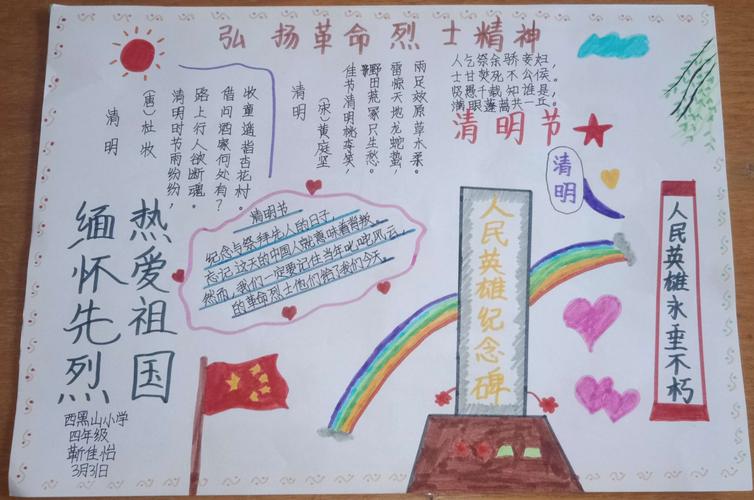 弘扬革命烈士精神
清明
(唐)杜牧
清明时节雨纷纷,
路上行人欲断魂。
借问酒家何处有?
牧童遥指杏花村。
清明
(宋)黄庭坚
佳节清明桃李笑,
野田荒冢只生愁。
雷惊天地龙蛇蛰,
雨足效原草木柔。
人乞祭余骄妾妇,
士甘焚死不公侯。
贤愚千载知谁是,
满眼蓬蒿共一丘。
清明节
清明
清明节
纪念与祭拜先人的日子,
忘记这天的中国人就意味着背叛。
然而,我们一定要记住当年叱咤风云、
的革命烈士他们给了我们今天。
热爱祖国
缅怀先烈
人民英雄纪念碑
人民英雄永垂不朽
西黑山小学
四年级
靳佳怡
3月31日